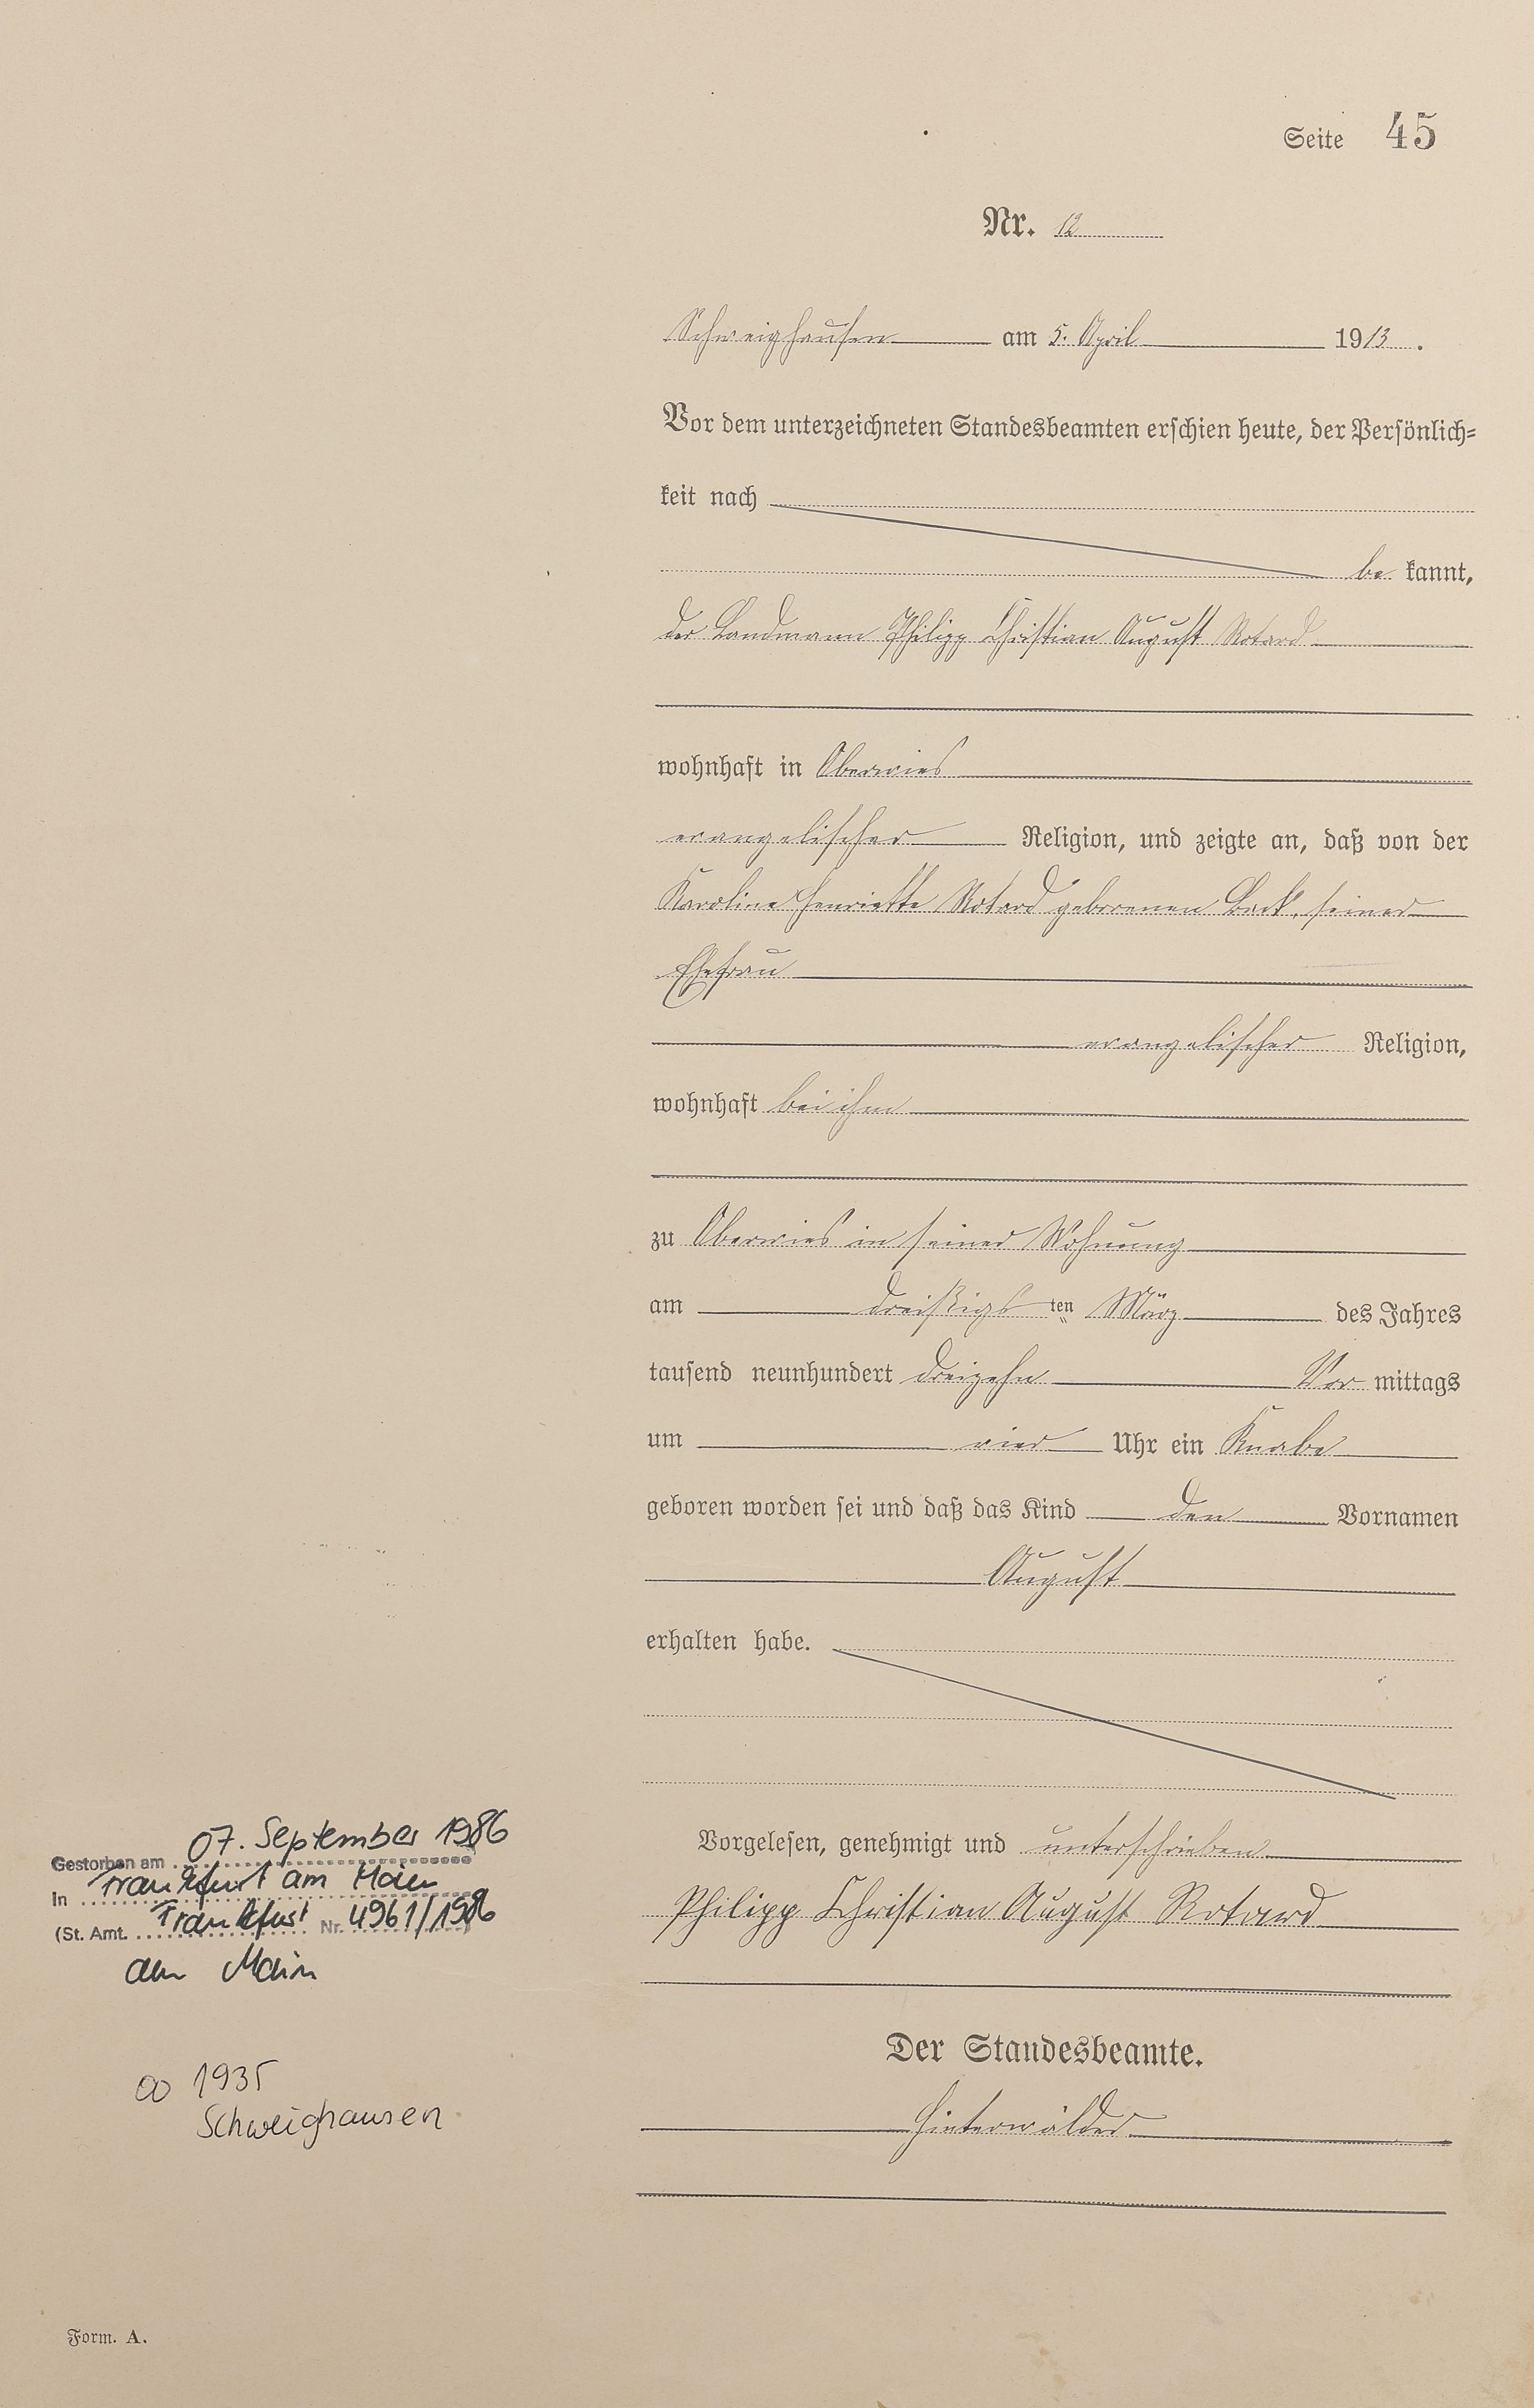 Seite 45
Nr. 12
Schweighausen am 5. April 1913.
Vor dem unterzeichneten Standesbeamten erschien heute, der Persönlich=
keit nach
be kannt,
der Landmann Philipp Christian August Rotard
wohnhaft in Oberwies
evangelischer Religion, und zeigte an, daß von der
Karoline Henriette Rotard geborenen Back, seiner
Ehefrau
evangelischer Religion,
wohnhaft bei ihm
zu Oberwies in seiner Wohnung
am dreißigsten März des Jahres
tausend neunhundert dreizehn Vor mittags
um vier Uhr ein Knabe
geboren worden sei und daß das Kind den Vornamen
August
erhalten habe.
Vorgelesen, genehmigt und unterschrieben
Philipp Christian August Rotard
Der Standesbeamte.
Hinterwälder
Gestorben am 07. September 1986
In Frankfurt am Main
(St. Amt. Frankfurt Nr. 4961/1986
am Main
∞ 1935
Schweighausen
Form. A.